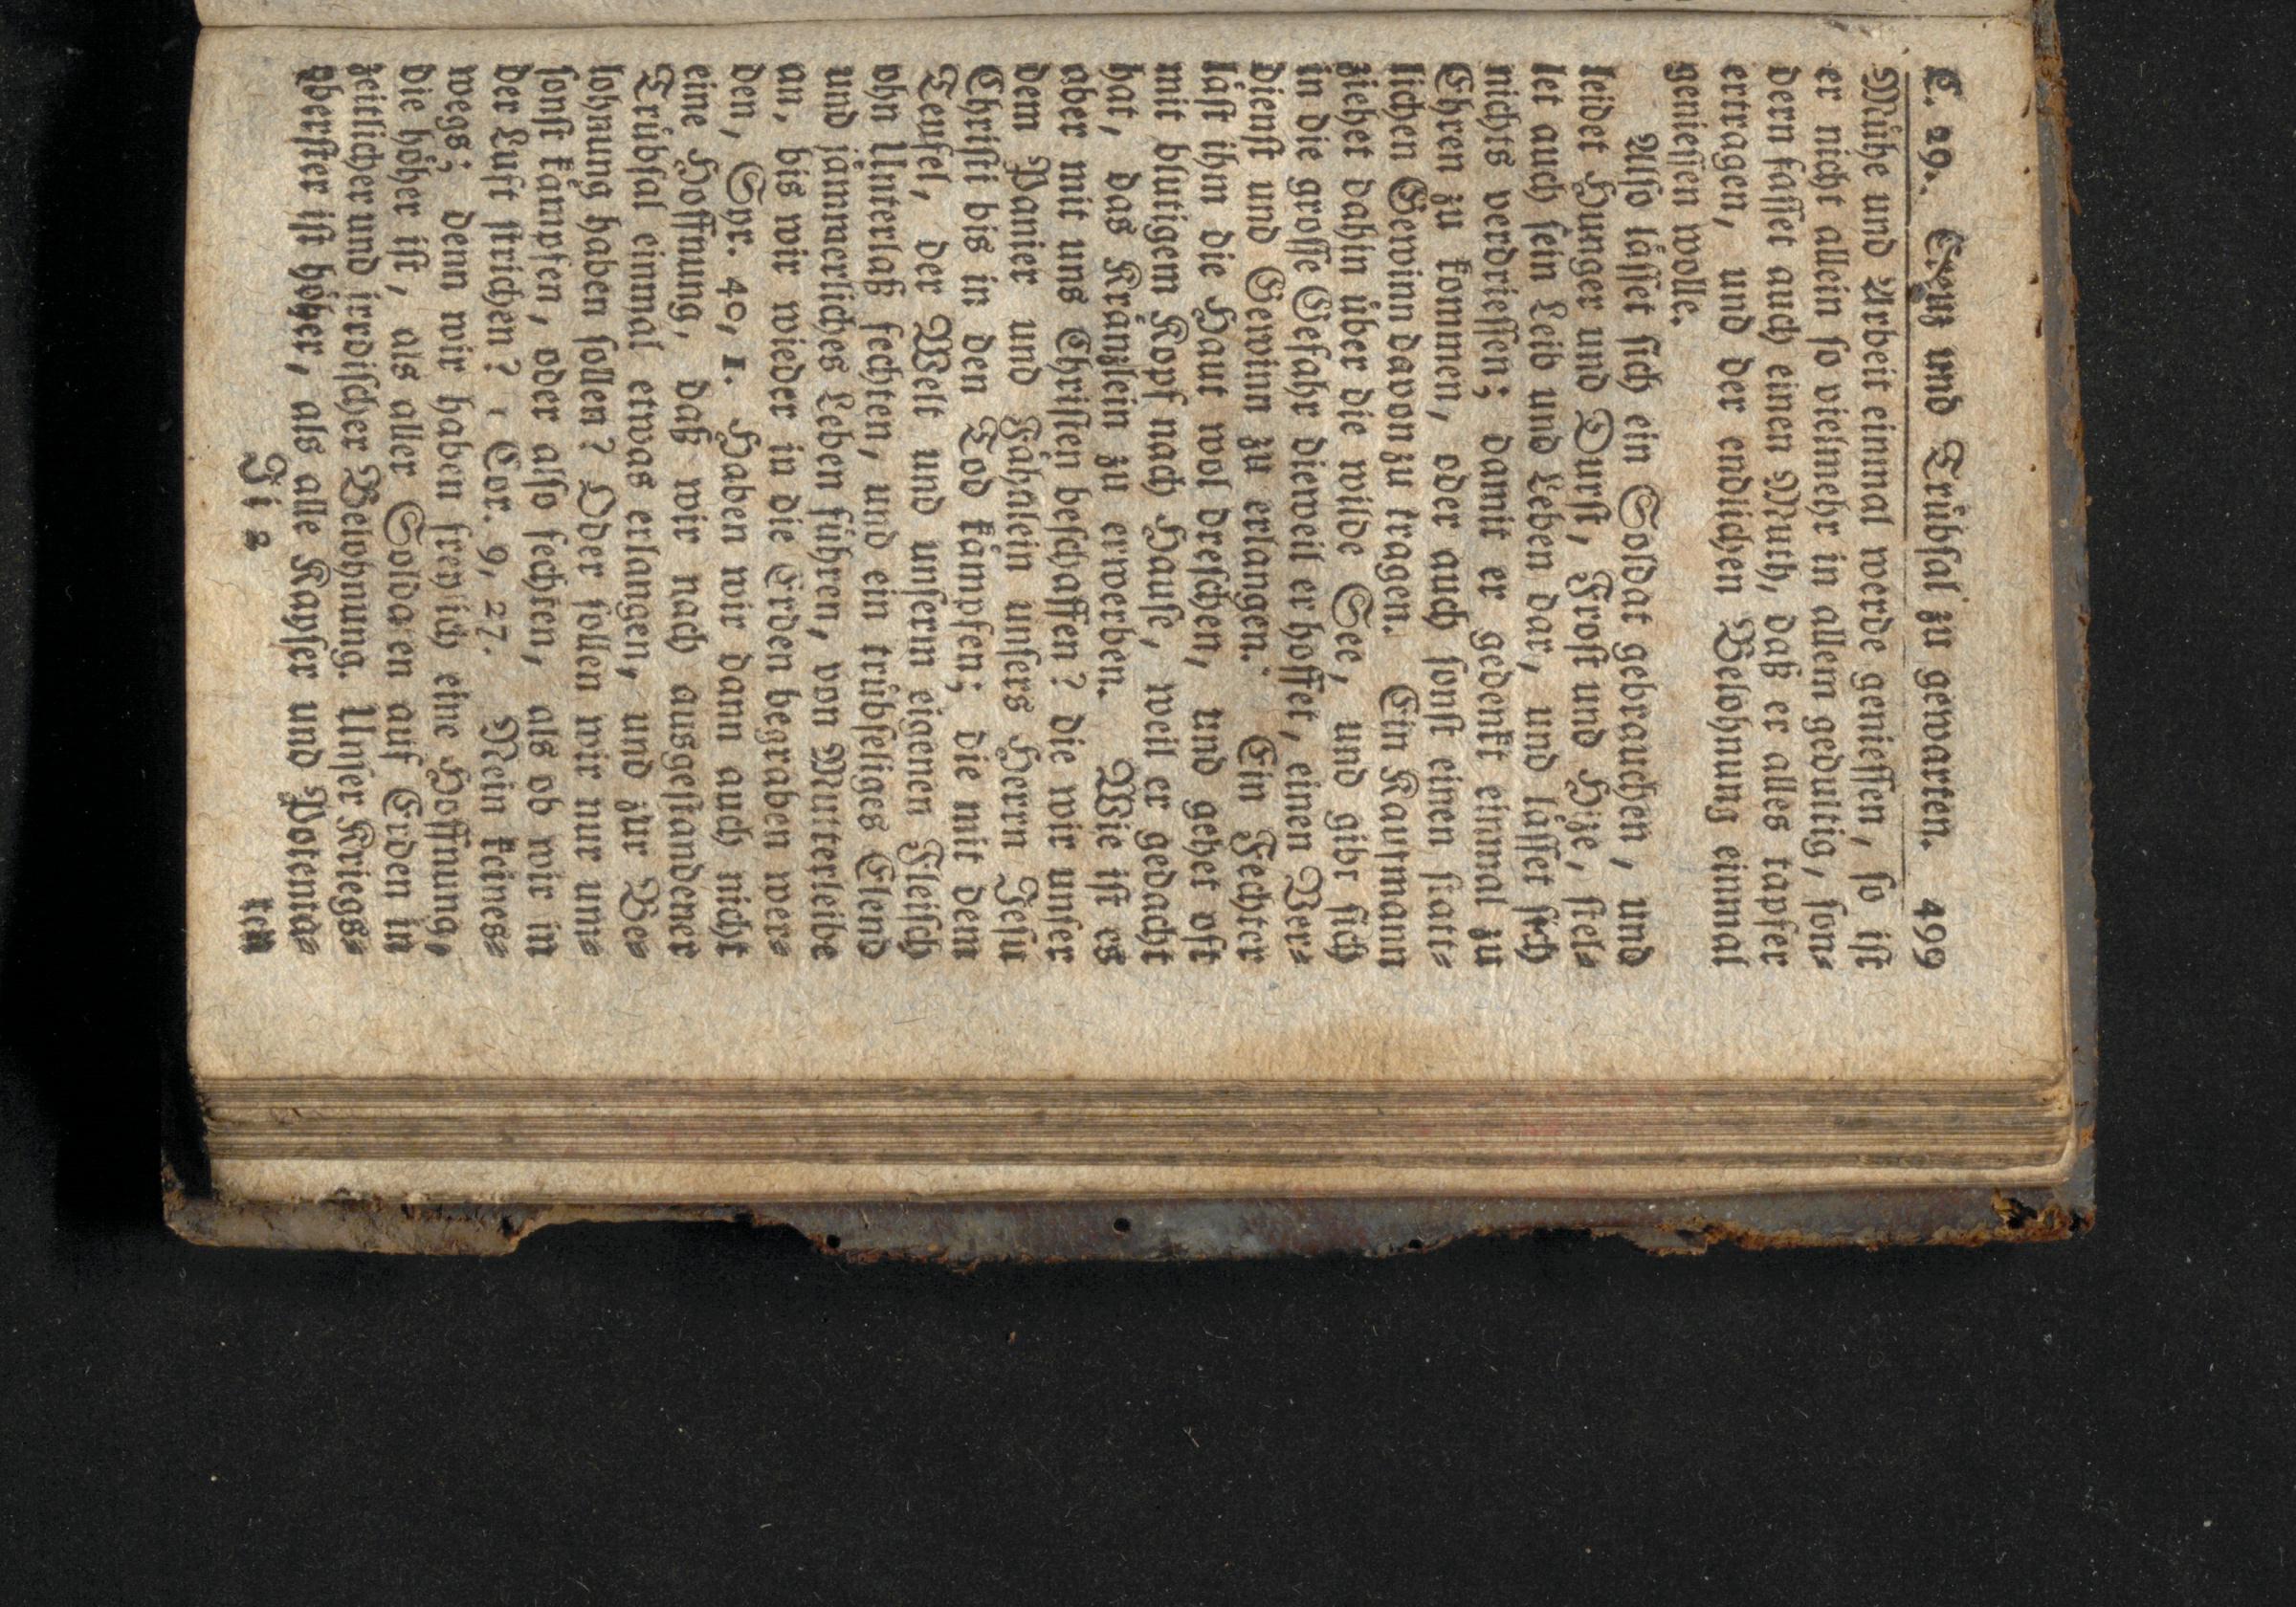 C. 29. Creuz und Trübsal zu gewarten. 499
Mühe und Arbeit einmal werde geniessen, so ist
er nicht allein so vielmehr in allem gedultig, son⸗
dern fasset auch einen Muth, daß er alles tapfer
ertragen, und der endlichen Belohnung einmal
geniessen wolle.
Also lässet sich ein Soldat gebrauchen, und
leidet Hunger und Durst, Frost und Hize, stel⸗
let auch sein Leib und Leben dar, und lässet sich
nichts verdriessen; damit er gedenkt einmal zu
Ehren zu kommen, oder auch sonst einen statt⸗
lichen Gewinn davon zu tragen. Ein Kaufmann
ziehet dahin über die wilde See, und gibt sich
in die grosse Gefahr dieweil er hoffet, einen Ver⸗
dienst und Gewinn zu erlangen. Ein Fechter
läst ihm die Haut wol dreschen, und gehet oft
mit blutigem Kopf nach Hause, weil er gedacht
hat, das Kränzlein zu erwerben. Wie ist es
aber mit uns Christen beschaffen? die wir unser
dem Panier und Fähnlein unsers Herrn Jesu
Christi bis in den Tod kämpfen; die mit dem
Teufel, der Welt und unserm eigenen Fleisch
ohn Unterlaß fechten, und ein trübseliges Elend
und jämmerliches Leben führen, von Mutterleibe
an, bis wir wieder in die Erden begraben wer⸗
den, Syr. 40, 1. Haben wir dann auch nicht
eine Hoffnung, daß wir nach ausgestandener
Trübsal einmal etwas erlangen, und zur Be⸗
lohnung haben sollen? Oder sollen wir nur um⸗
sonst kämpfen, oder also fechten, als ob wir in
der Luft strichen? 1 Cor. 9, 27. Nein keines⸗
wegs; denn wir haben freylich eine Hoffnung,
die höher ist, als aller Soldaten auf Erden in
zeitlicher und irrdischer Belohnung. Unser Kriegs⸗
oberster ist höher, als alle Kayser und Potenta⸗
Ji 2 ten